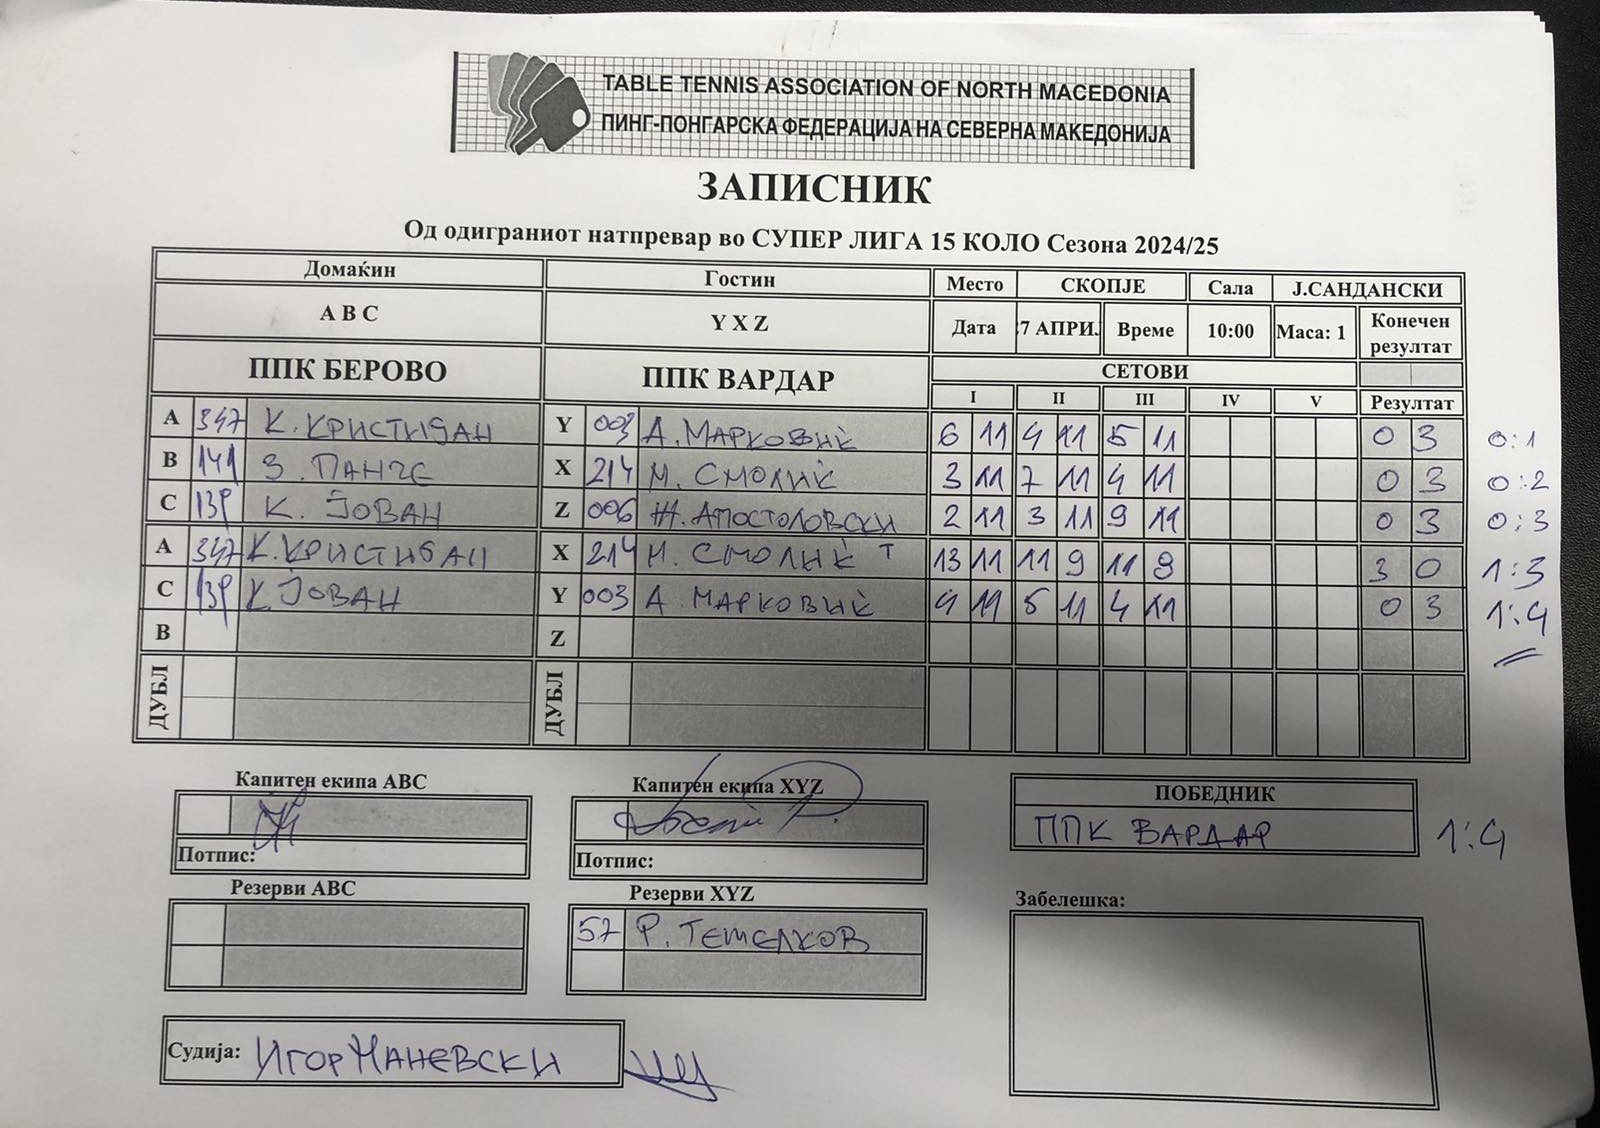 TABLE TENNIS ASSOCIATION OF NORTH MACEDONIA
ПИНГ-ПОНГАРСКА ФЕДЕРАЦИЈА НА СЕВЕРНА МАКЕДОНИЈА
ЗАПИСНИК
Од одиграниот натпревар во СУПЕР ЛИГА 15 КОЛО Сезона 2024/25
Домаќин Гостин Место СКОПЈЕ Сала Ј.САНДАНСКИ
A B C Y X Z Дата 7 АПРИ. Време 10:00 Маса: 1 Конечен резултат
ППК БЕРОВО ППК ВАРДАР СЕТОВИ
I II III IV V Резултат
A 347 К. КРИСТИЈАН Y 003 А. МАРКОВИЌ 6 11 4 11 5 11 0 3 0:1
B 141 З. ПАНЧЕ X 214 М. СМОЛИЌ 3 11 7 11 4 11 0 3 0:2
C 139 К. ЈОВАН Z 006 Ж. АПОСТОЛОВСКИ 2 11 3 11 9 11 0 3 0:3
A 347 К. КРИСТИЈАН X 214 М. СМОЛИЌ T 13 11 11 9 11 8 3 0 1:3
C 139 К. ЈОВАН Y 003 А. МАРКОВИЌ 9 11 5 11 4 11 0 3 1:4
B Z
ДУБЛ ДУБЛ
Капитен екипа ABC Капитен екипа XYZ ПОБЕДНИК
ППК ВАРДАР 1:4
Потпис: Потпис:
Резерви ABC Резерви XYZ Забелешка:
57 Р. ТЕМЕЛКОВ
Судија: ИГОР НАНЕВСКИ